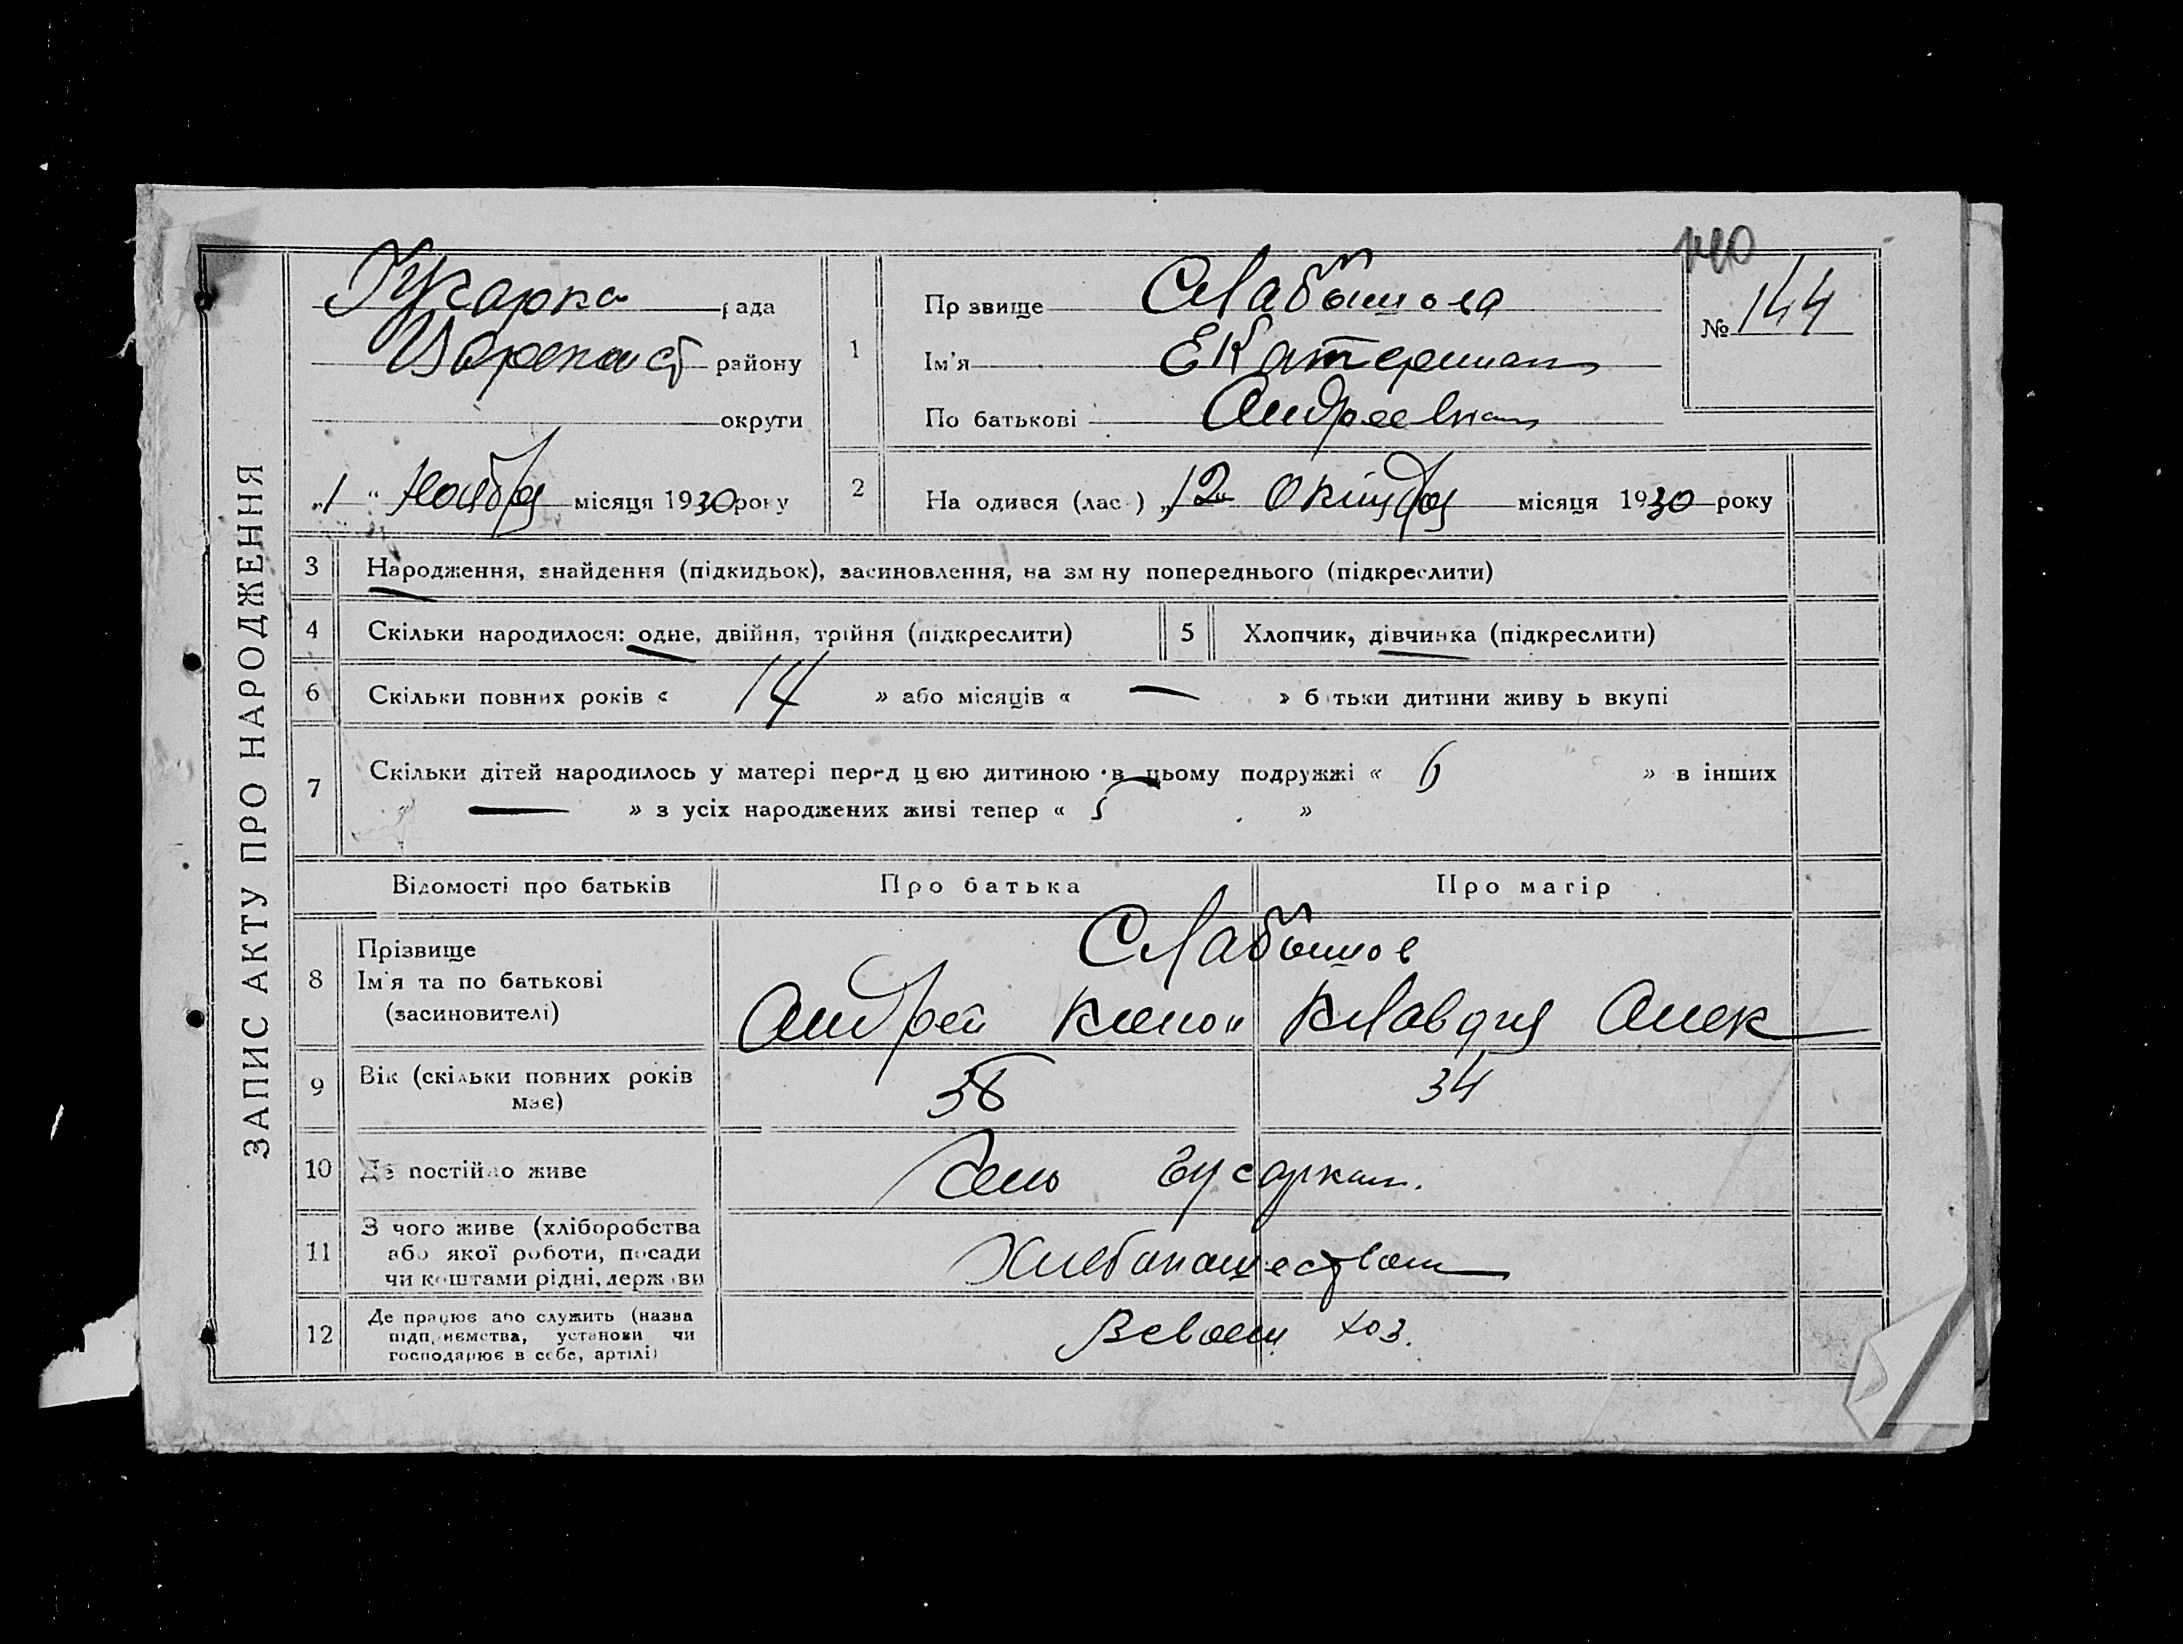 ЗАПИС АКТУ ПРО НАРОДЖЕННЯ
Гусарка рада
району
округи
„1“ Ноября місяця 1930 року
1
Пр звище Слабошова
Ім'я Екатерина
По батькові Андреевна
№ 144
2
На одився (лас ) „12“ Октября місяця 1930 року
3 Народження, знайдення (підкидьок), засиновлення, на зм ну попереднього (підкреслити)
4 Скільки народилося: одне, двійня, трійня (підкреслити)
5 Хлопчик, дівчинка (підкреслити)
6 Скільки повних років « 14 » або місяців « — » б тьки дитини живу ь вкупі
7 Скільки дітей народилось у матері перед цією дитиною в цьому подружжі « 6 » в інших
— » з усіх народжених живі тепер « 5 »
Відомості про батьків Про батька Про матір
8 Прізвище
Ім'я та по батькові
(засиновителі)
Слабошов
Андрей Клавдия Алек
9 Вік (скільки повних років
має)
38 34
10 Де постійно живе
Село Гусарка
11 З чого живе (хліборобства
або якої роботи, посади
чи коштами рідні, держ ви
Хлебопашеством
12 Де працює або служить (назва
підп иємства, установи чи
господарює в себе, артілі)
В своем хоз.